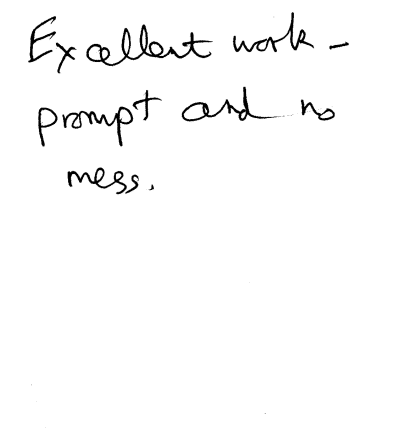 Excellent work -
prompt and no
mess.